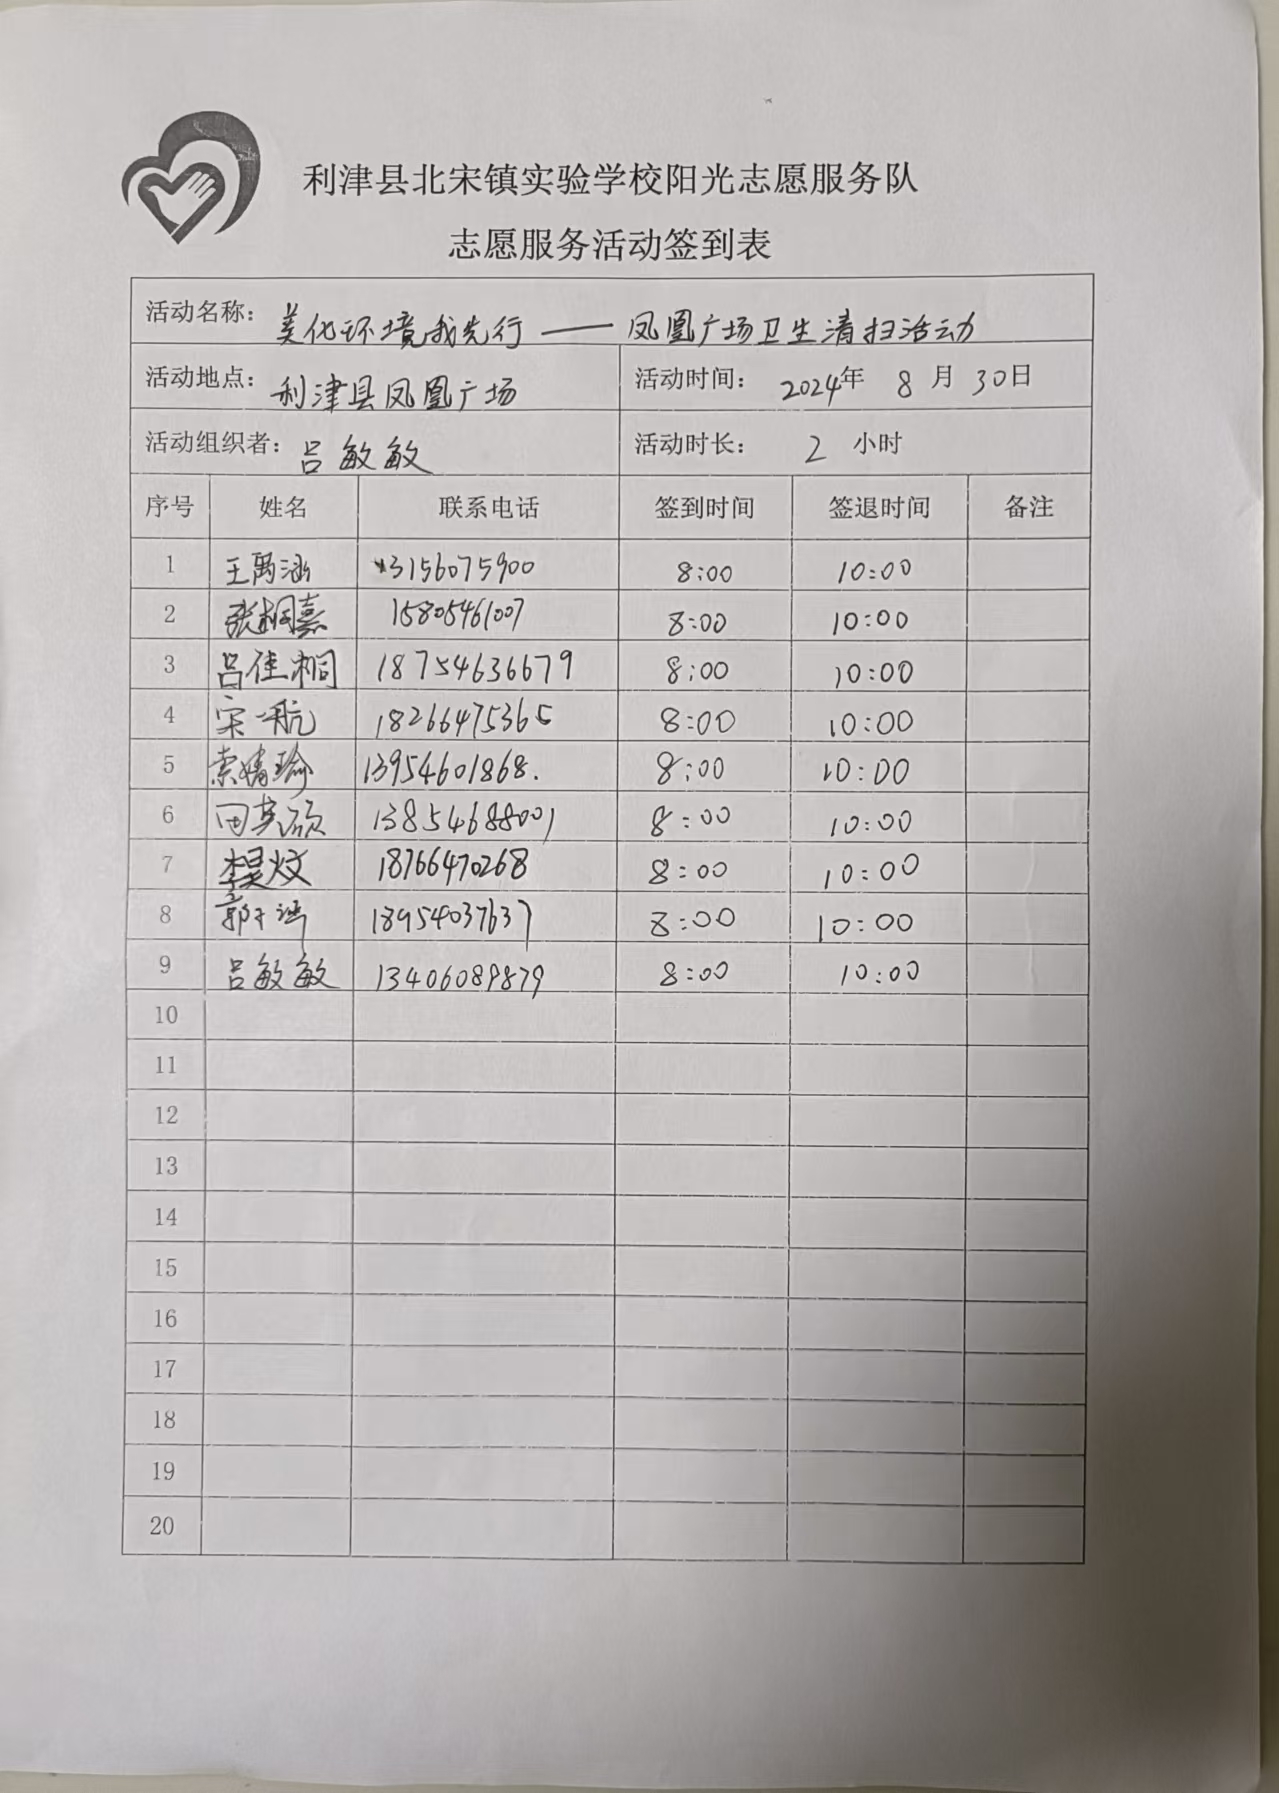 利津县北宋镇实验学校阳光志愿服务队
志愿服务活动签到表
活动名称： 美化环境我先行——凤凰广场卫生清扫活动
活动地点： 利津县凤凰广场 活动时间： 2024年 8月30日
活动组织者： 吕敏敏 活动时长： 2 小时
序号 姓名 联系电话 签到时间 签退时间 备注
1 王禹涵 13156075900 8:00 10:00
2 张桐嘉 15805461007 8:00 10:00
3 吕佳桐 18754636679 8:00 10:00
4 宋一航 18266475365 8:00 10:00
5 索婧瑜 13954601868. 8:00 10:00
6 田英硕 13854688001 8:00 10:00
7 李昊炆 18766470268 8:00 10:00
8 郭子涵 18954037637 8:00 10:00
9 吕敏敏 13406089879 8:00 10:00
10
11
12
13
14
15
16
17
18
19
20